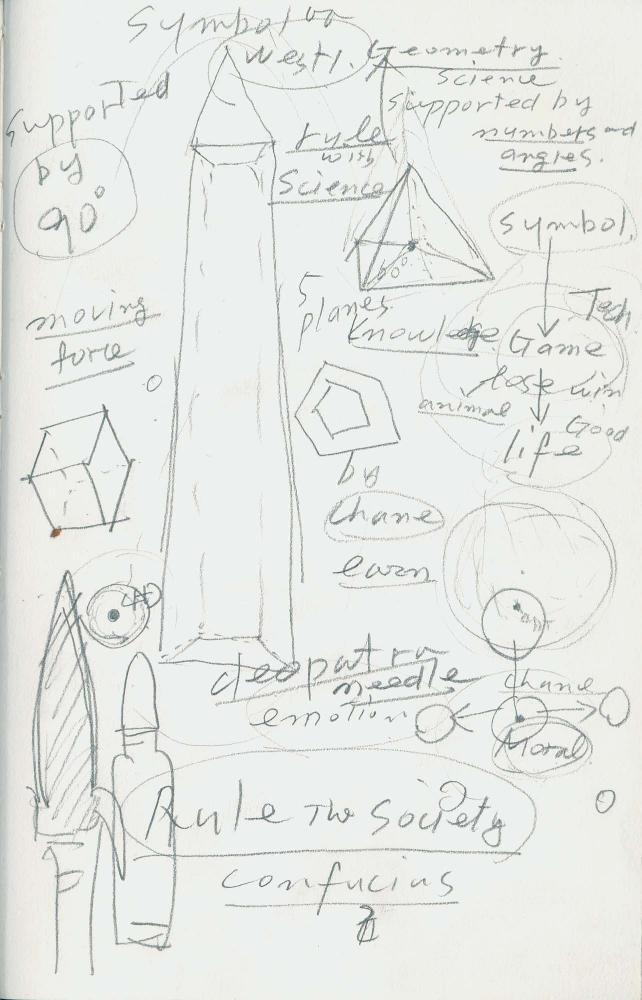 Symbol of
West. Geometry.
Science
Supported by
numbers and
angles.
Supported
by
90°
rule
with
Science
90°
Symbol.
moving
force
5
planes
Knowledge
Tech.
Game
lose win
animal
Good
life
by
Chane
earn
Cleopatra
needle
emotion
chane
Moral
Rule The Society
Confucius